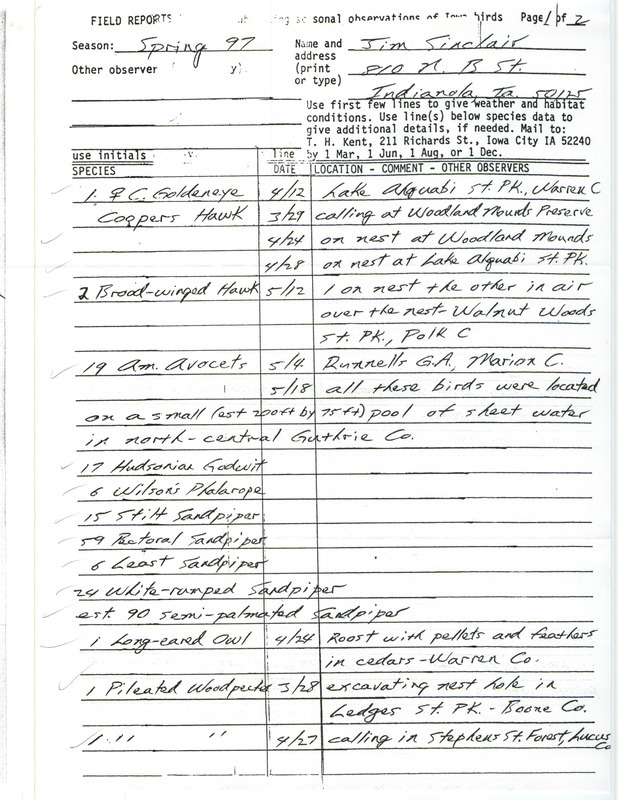 FIELD REPORTS sonal observations of Iowa birds Page 1 of 2
Season: Spring 97 Name and Jim Sinclair
address
Other observer y). (print 810 N. B St.
or type)
Indianola, Ia. 50125
Use first few lines to give weather and habitat
conditions. Use line(s) below species data to
give additional details, if needed. Mail to:
T. H. Kent, 211 Richards St., Iowa City IA 52240
use initials v. line by 1 Mar, 1 Jun, 1 Aug, or 1 Dec.
SPECIES DATE LOCATION - COMMENT - OTHER OBSERVERS
1 ♀ C. Goldeneye 4/12 Lake Alquabi St. PK., Warren C
Coopers Hawk 3/29 calling at Woodland Mounds Preserve
4/24 on nest at Woodland Mounds
4/28 on nest at Lake Alquabi St. PK.
2 Broad-winged Hawk 5/12 1 on nest the other in air
over the nest- Walnut Woods
St. PK., Polk C
19 Am. Avocets 5/4 Runnells G.A., Marion C.
5/18 all these birds were located
on a small (est 200ft by 75ft) pool of sheet water
in north-central Guthrie Co.
17 Hudsonian Godwit
6 Wilson's Phalarope
15 Stilt Sandpiper
59 Pectoral Sandpiper
6 Least Sandpiper
24 White-rumped Sandpiper
est. 90 semi-palmated Sandpiper
1 Long-eared Owl 4/24 Roost with pellets and feathers
in cedars - Warren Co.
1 Pileated Woodpecker 3/28 excavating nest hole in
Ledges St. PK. - Boone Co.
1 " " 4/27 calling in Stephens St. Forest, Lucus
Co